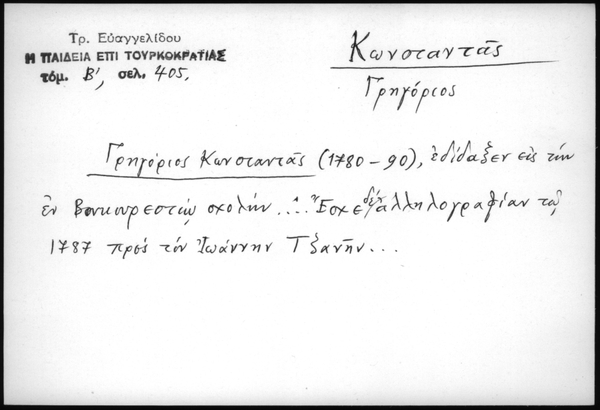 Τρ. Εὐαγγελίδου
Η ΠΑΙΔΕΙΑ ΕΠΙ ΤΟΥΡΚΟΚΡΑΤΙΑΣ
τόμ. Β', σελ. 405.
Κωνσταντᾶς
Γρηγόριος
Γρηγόριος Κωνσταντᾶς (1780-90), ἐδίδαξεν εἰς τήν
ἐν Βουκουρεστίῳ σχολήν.... Ἔσχε δέ ἀλληλογραφίαν τῷ
1787 πρός τόν Ἰωάννην Τζανῆν...